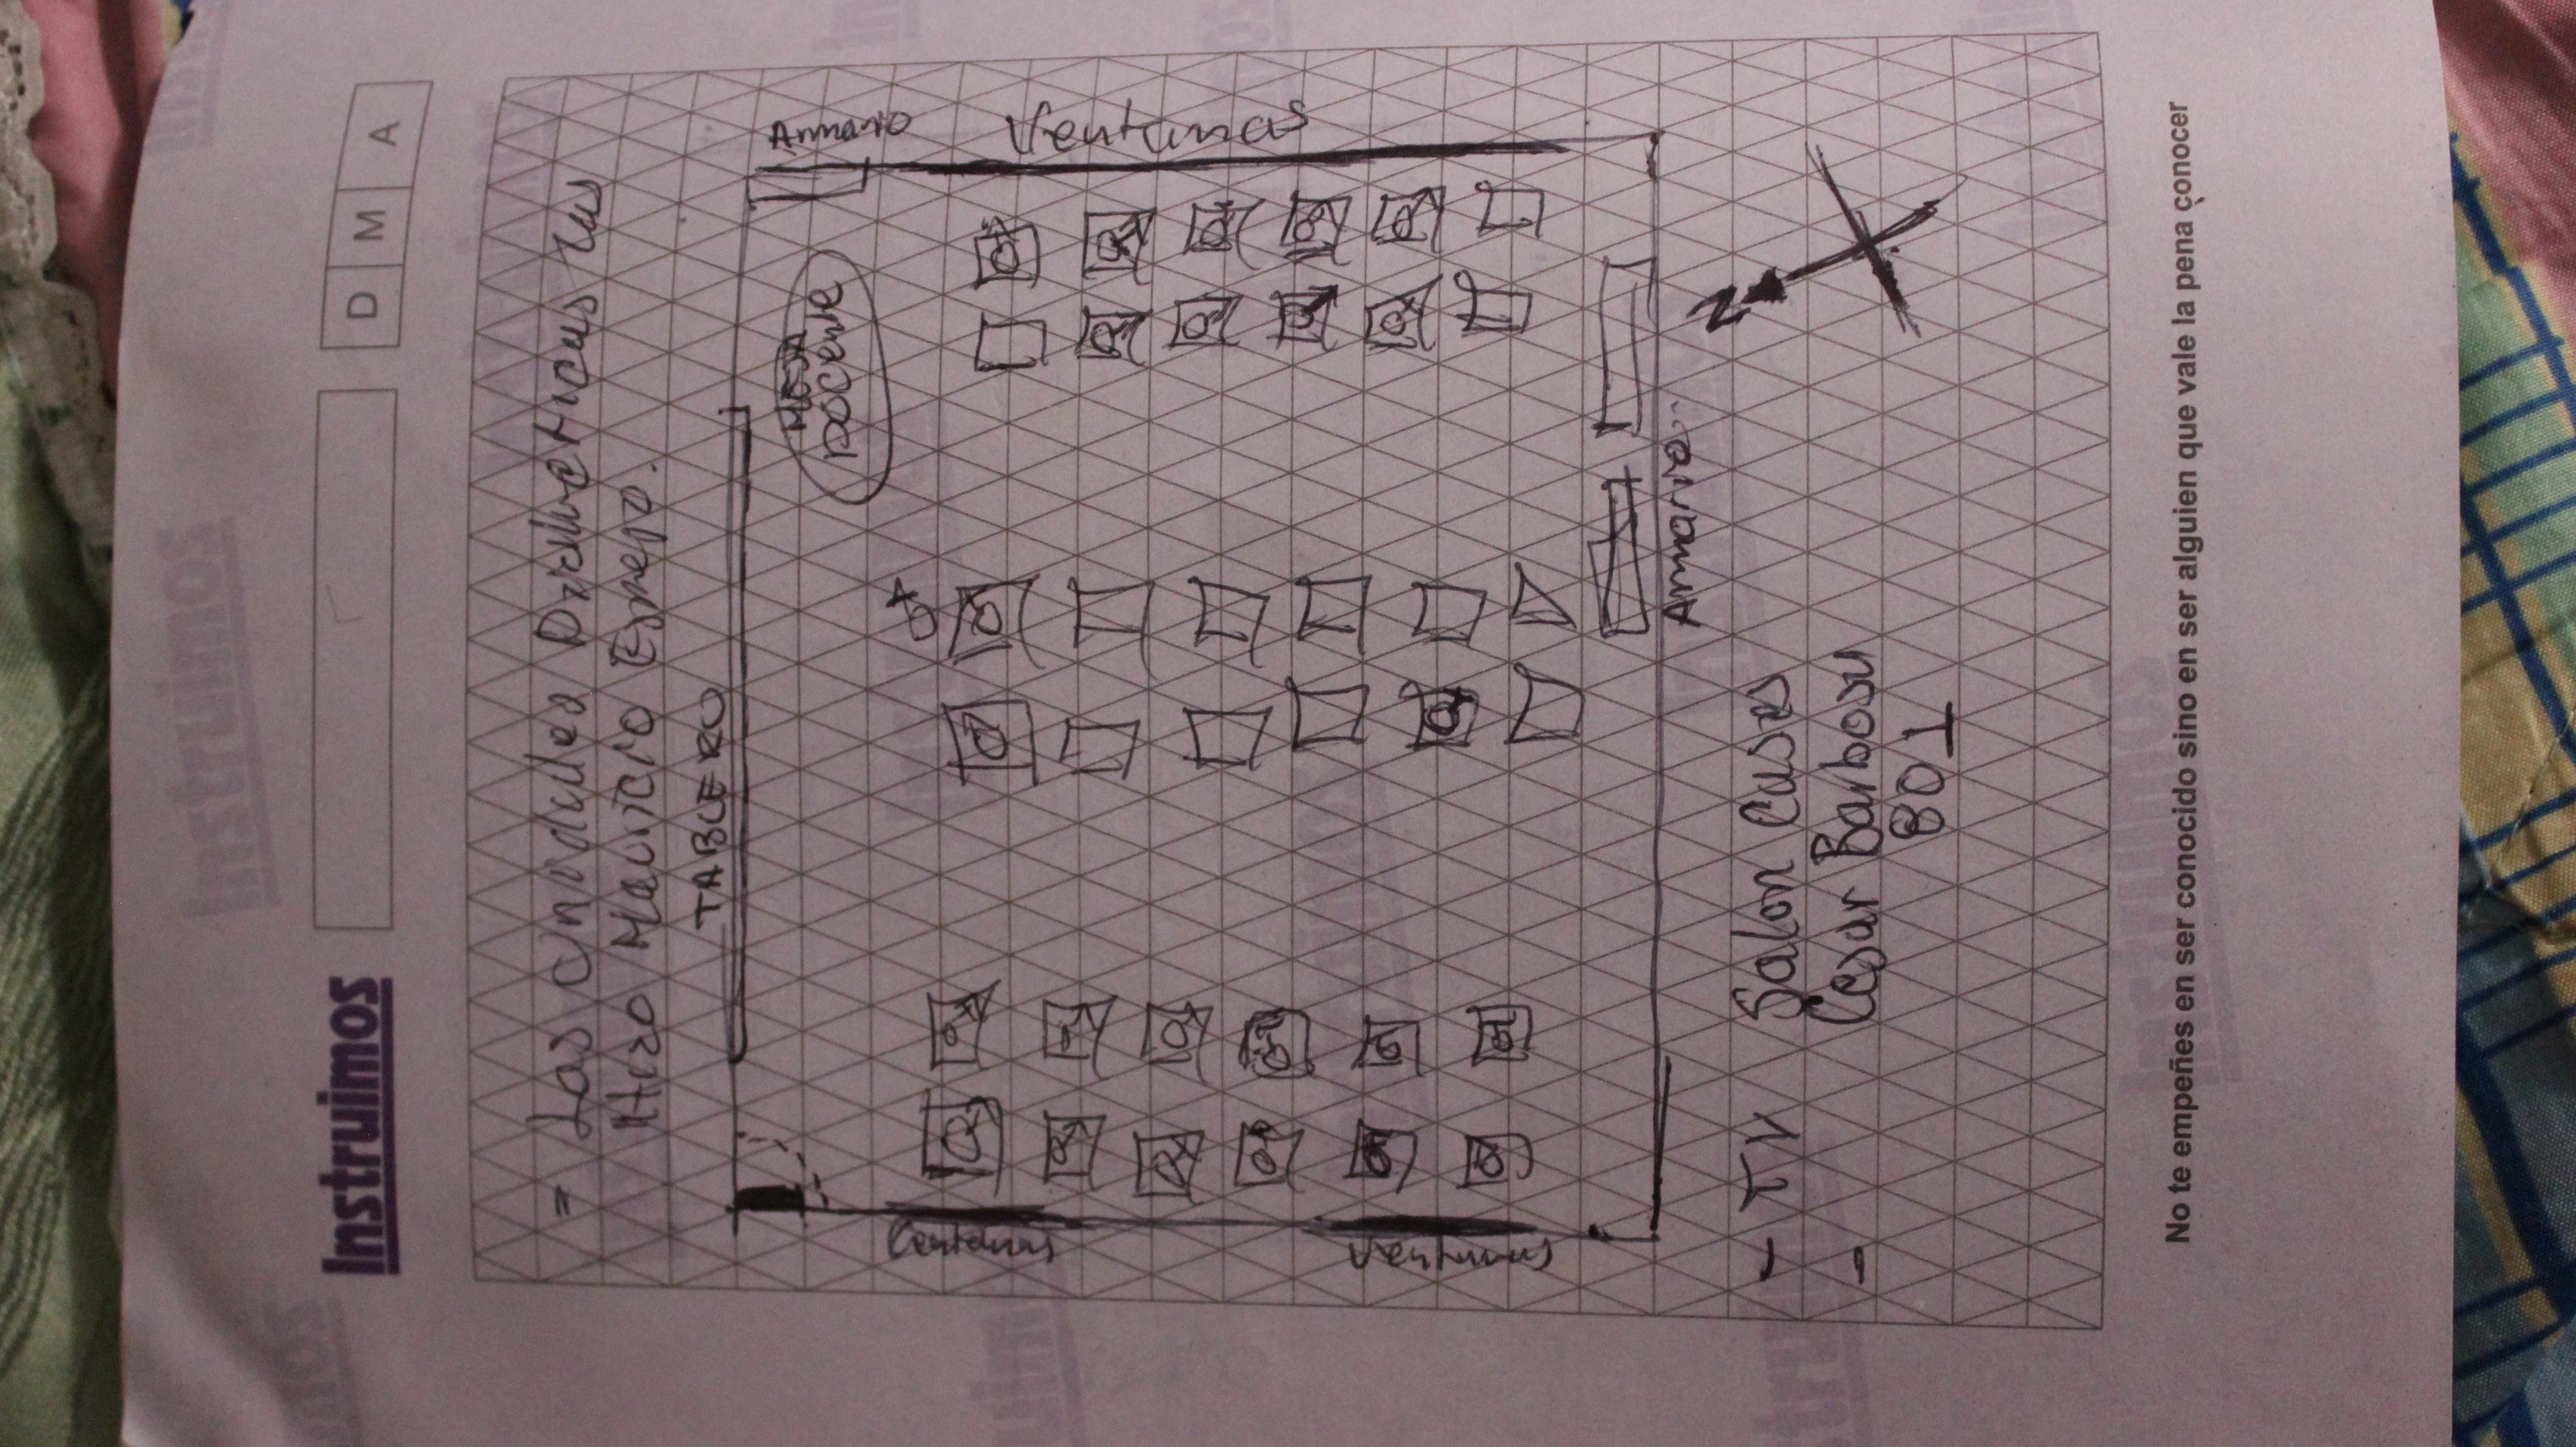 Instruimos
D M A
= Las Unidades Didacticas las
Hizo Mauricio Ermepo.
TABLERO
Armario
Ventanas
MESA
DOCENTE
Ventanas
Ventanas
Armarios
N
- TV
-
Salon Casas
Cesar Barbosa
801
No te empeñes en ser conocido sino en ser alguien que vale la pena conocer